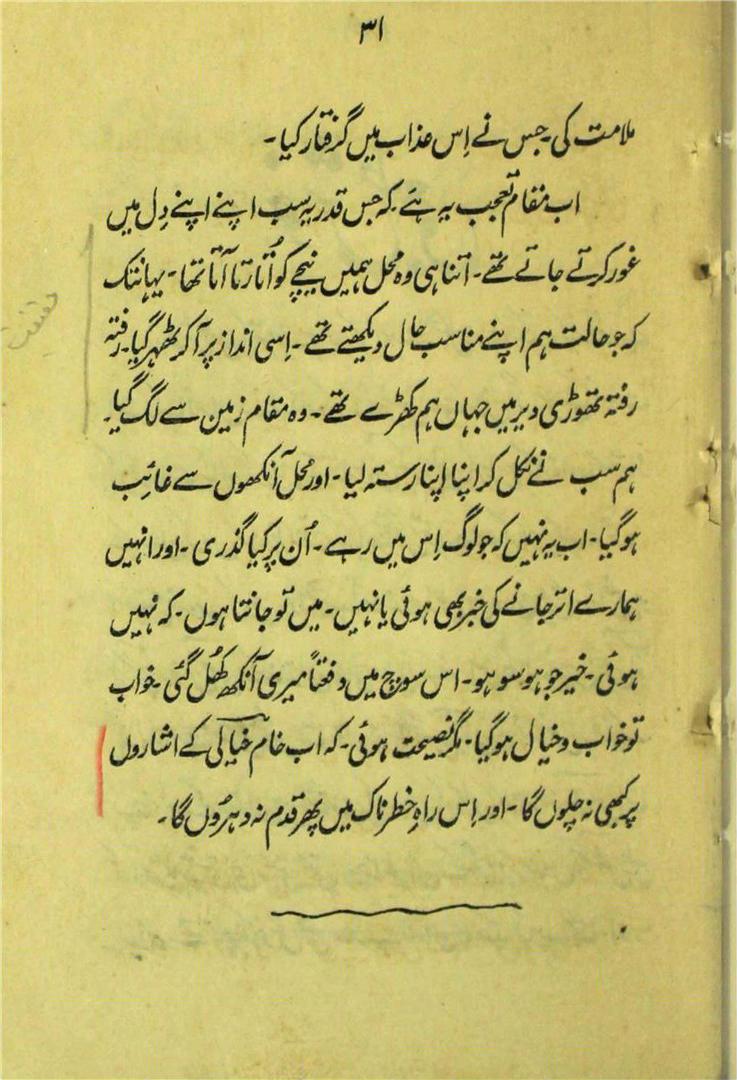 ۳۱
ملامت کی۔ جس نے اِس عذاب میں گرفتار کیا۔
اب مقام تعجب یہ ہے۔ کہ جس قدر یہ سب اپنے اپنے دِل میں
غور کرتے جاتے تھے۔ اُتنا ہی وہ محل ہمیں نیچے کو اُتارتا آتا تھا۔ یہانتک
کہ جو حالت ہم اپنے مناسب حال دیکھتے تھے۔ اِسی انداز پر آکر ٹھہر گیا۔ رفتہ
رفتہ تھوڑی دیر میں جہاں ہم کھڑے تھے۔ وہ مقام زمین سے لگ گیا۔
ہم سب نے نکل کر اپنا اپنا رستہ لیا۔ اور محل آنکھوں سے غائب
ہوگیا۔ اب یہ نہیں کہ جو لوگ اِس میں رہے۔ اُن پر کیا گذری۔ اور انہیں
ہمارے اتر جانے کی خبر بھی ہوئی یا نہیں۔ میں تو جانتا ہوں۔ کہ نہیں
ہوئی۔ خیر جو ہو سو ہو۔ اس سوچ میں دفعتاً میری آنکھ کھُل گئی۔ خواب
تو خواب و خیال ہوگیا۔ مگر نصیحت ہوئی۔ کہ اب خام خیالی کے اشاروں
پر کبھی نہ چلوں گا۔ اور اِس راہِ خطرناک میں پھر قدم نہ دہروں گا۔